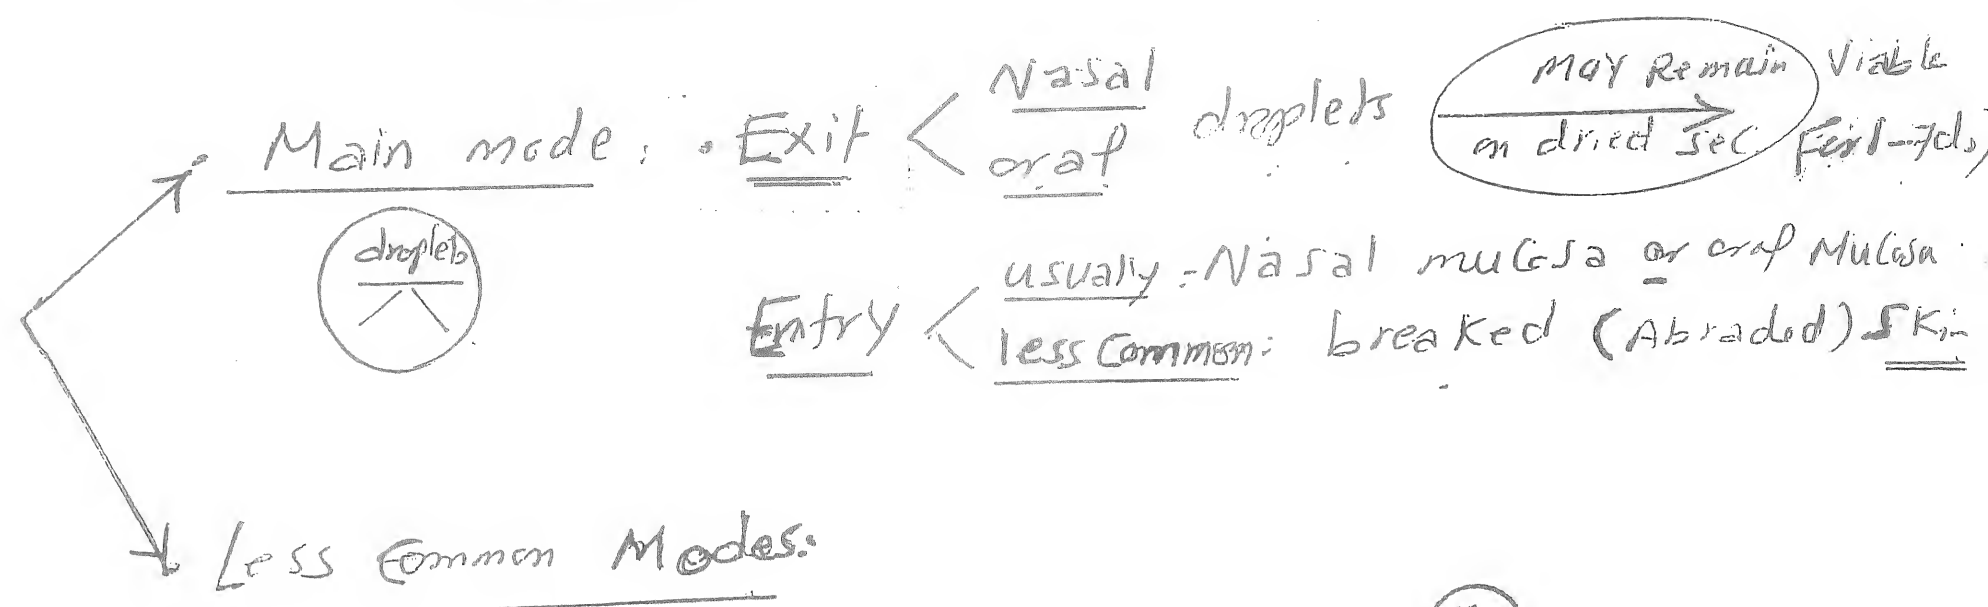 Main mode: . Exit < Nasal
oral droplets
May Remain Viable
on dried sec. For 1-7 ds,
droplets
Entry < usually: Nasal mucosa or oral Mucosa
less common: breaked (Abraded) Skin
Less common Modes: